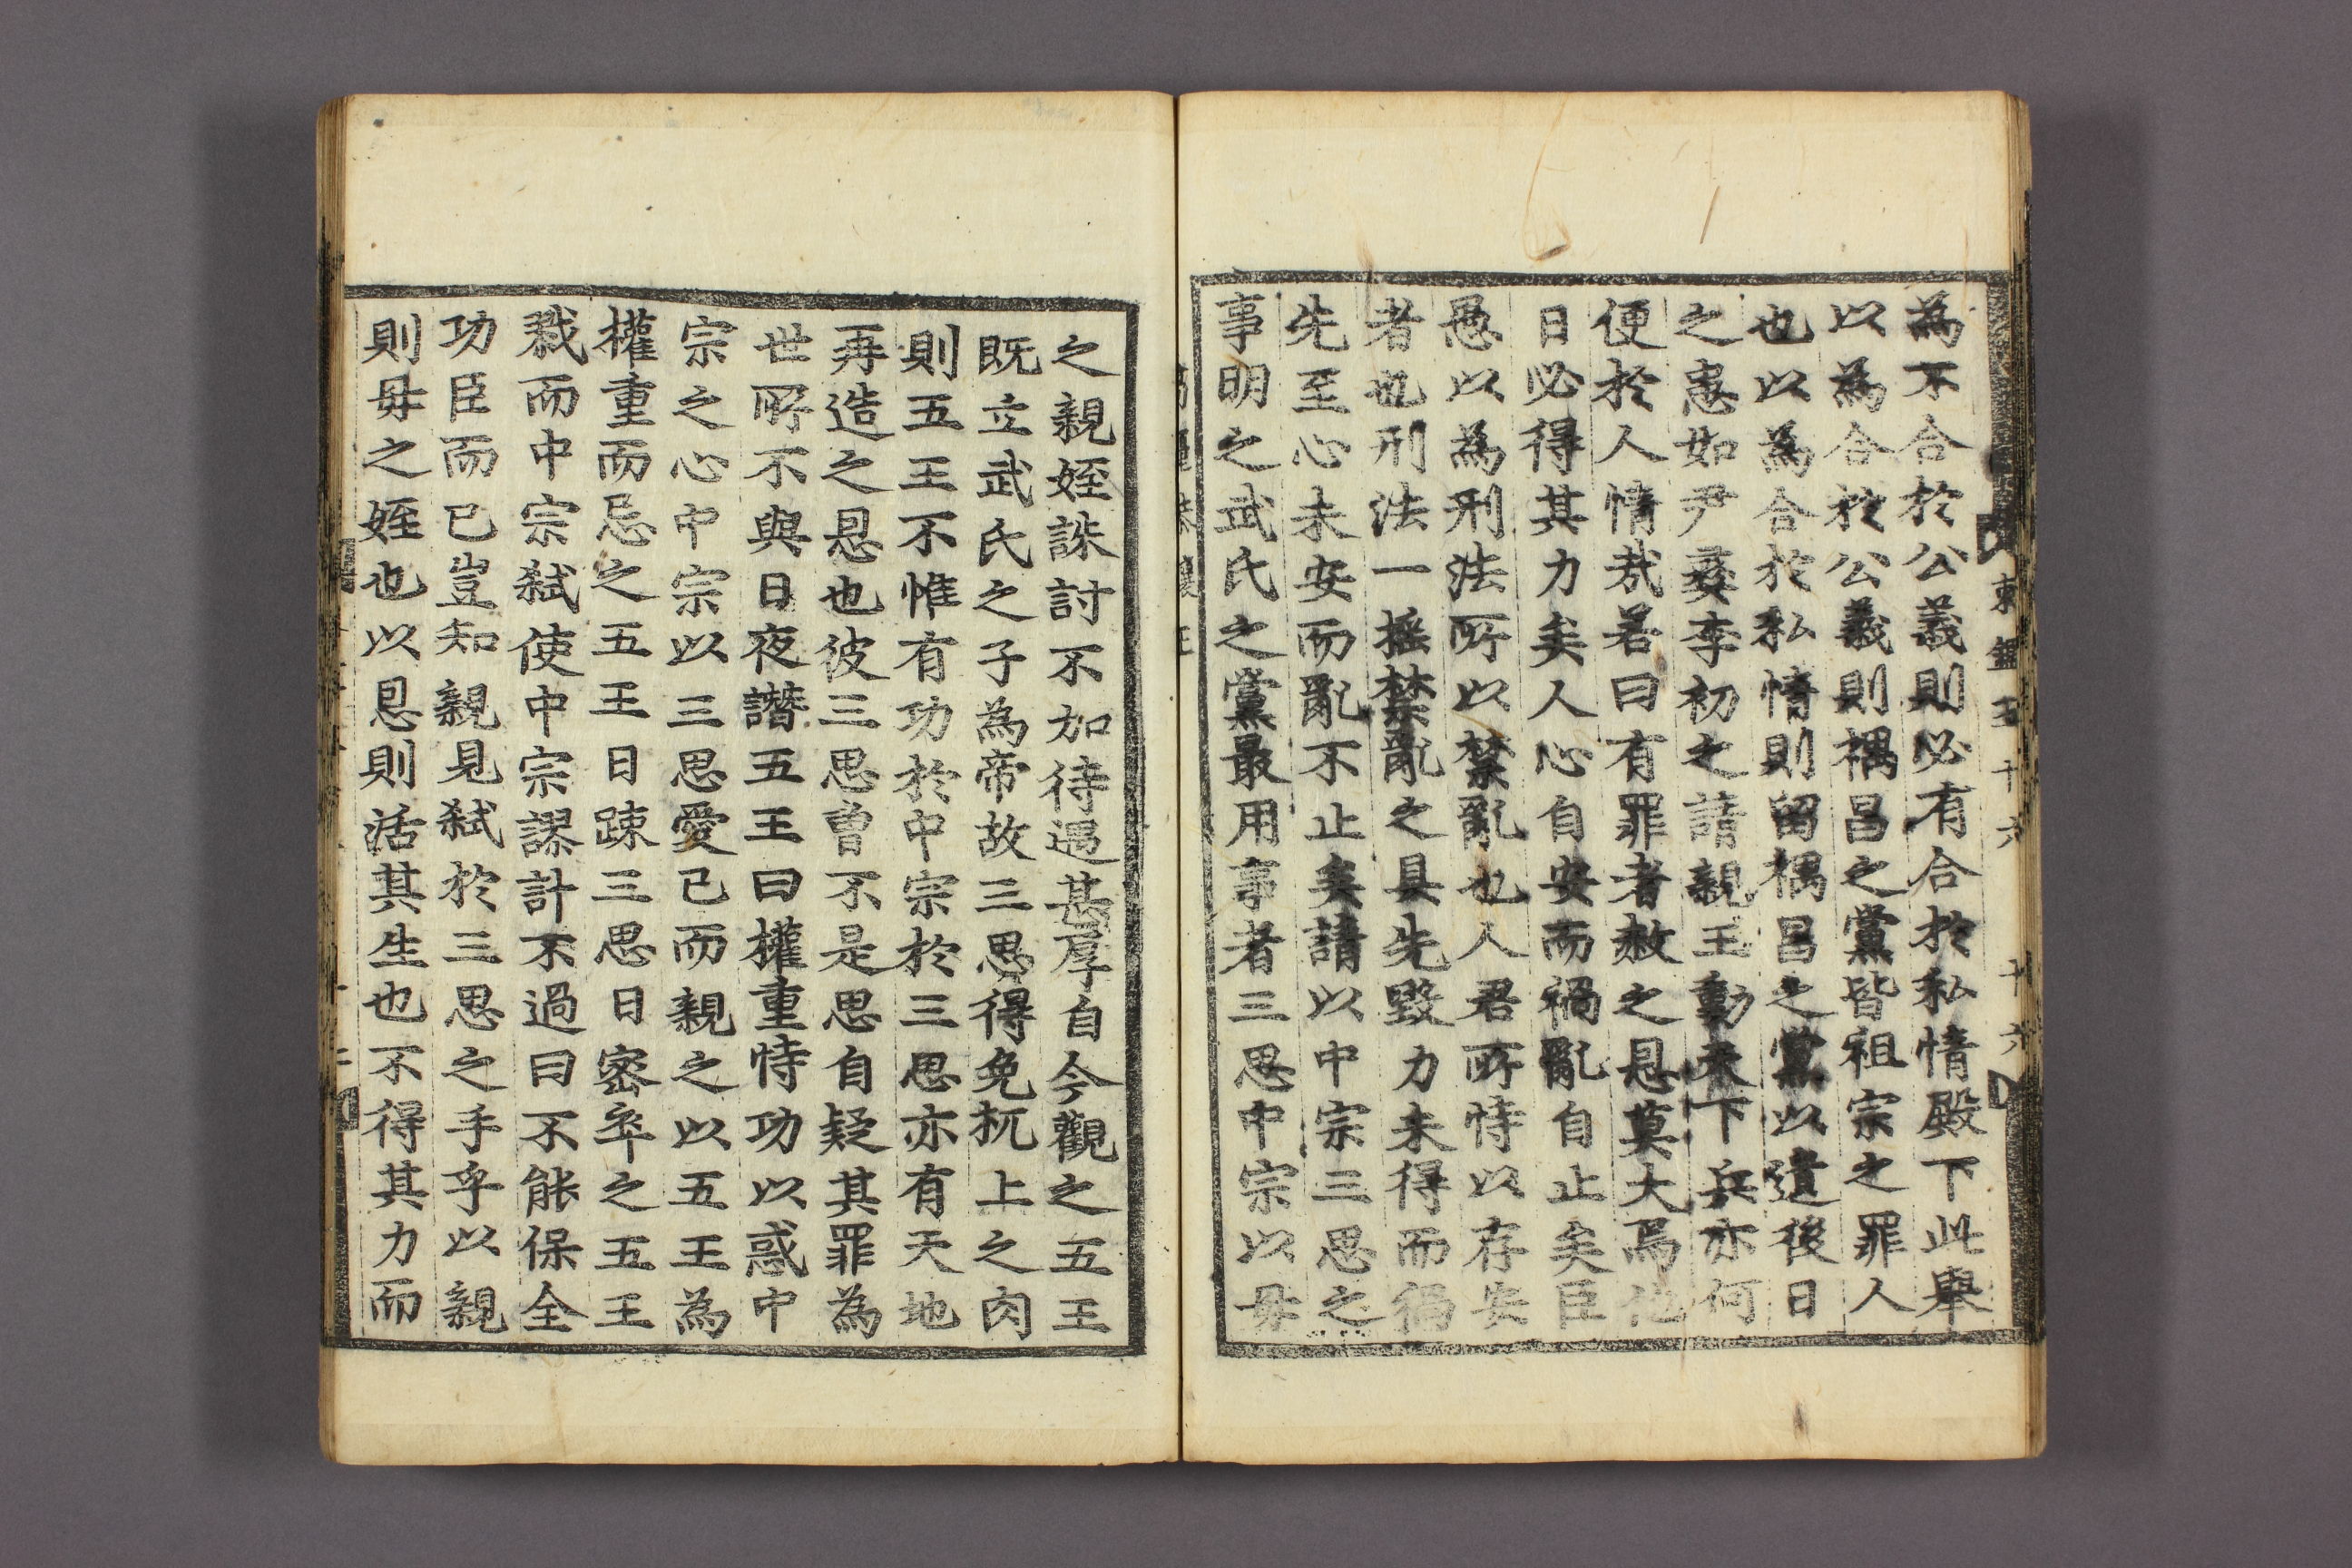 東鑑五十六 十六
為不合於公義則必有合於私情殿下此舉
以為合於公義則禑昌之黨皆祖宗之罪人
也以為合於私情則留禑昌之黨以遺後日
之患如尹彛李初之請親王動天下兵亦何
便於人情㢤若曰有罪者赦之恩莫大焉他
日必得其力矣人心自安而禍亂自止矣臣
愚以為刑法所以禁亂也人君所恃以存安
者也刑法一摇禁亂之具先毀力未得而禍
先至心未安而亂不止矣請以中宗三思之
事明之武氏之黨最用事者三思中宗以母
之親姪誅討不加待遇甚厚自今觀之五王
既立武氏之子為帝故三思得免杌上之肉
則五王不惟有功於中宗於三思亦有天地
再造之恩也彼三思曾不是思自疑其罪為
世所不與日夜譖五王曰權重恃功以惑中
宗之心中宗以三思愛己而親之以五王為
權重而忌之五王日踈三思日密卒之五王
戮而中宗弑使中宗謬計不過曰不能保全
功臣而已豈知親見弑於三思之手乎以親
則母之姪也以恩則活其生也不得其力而